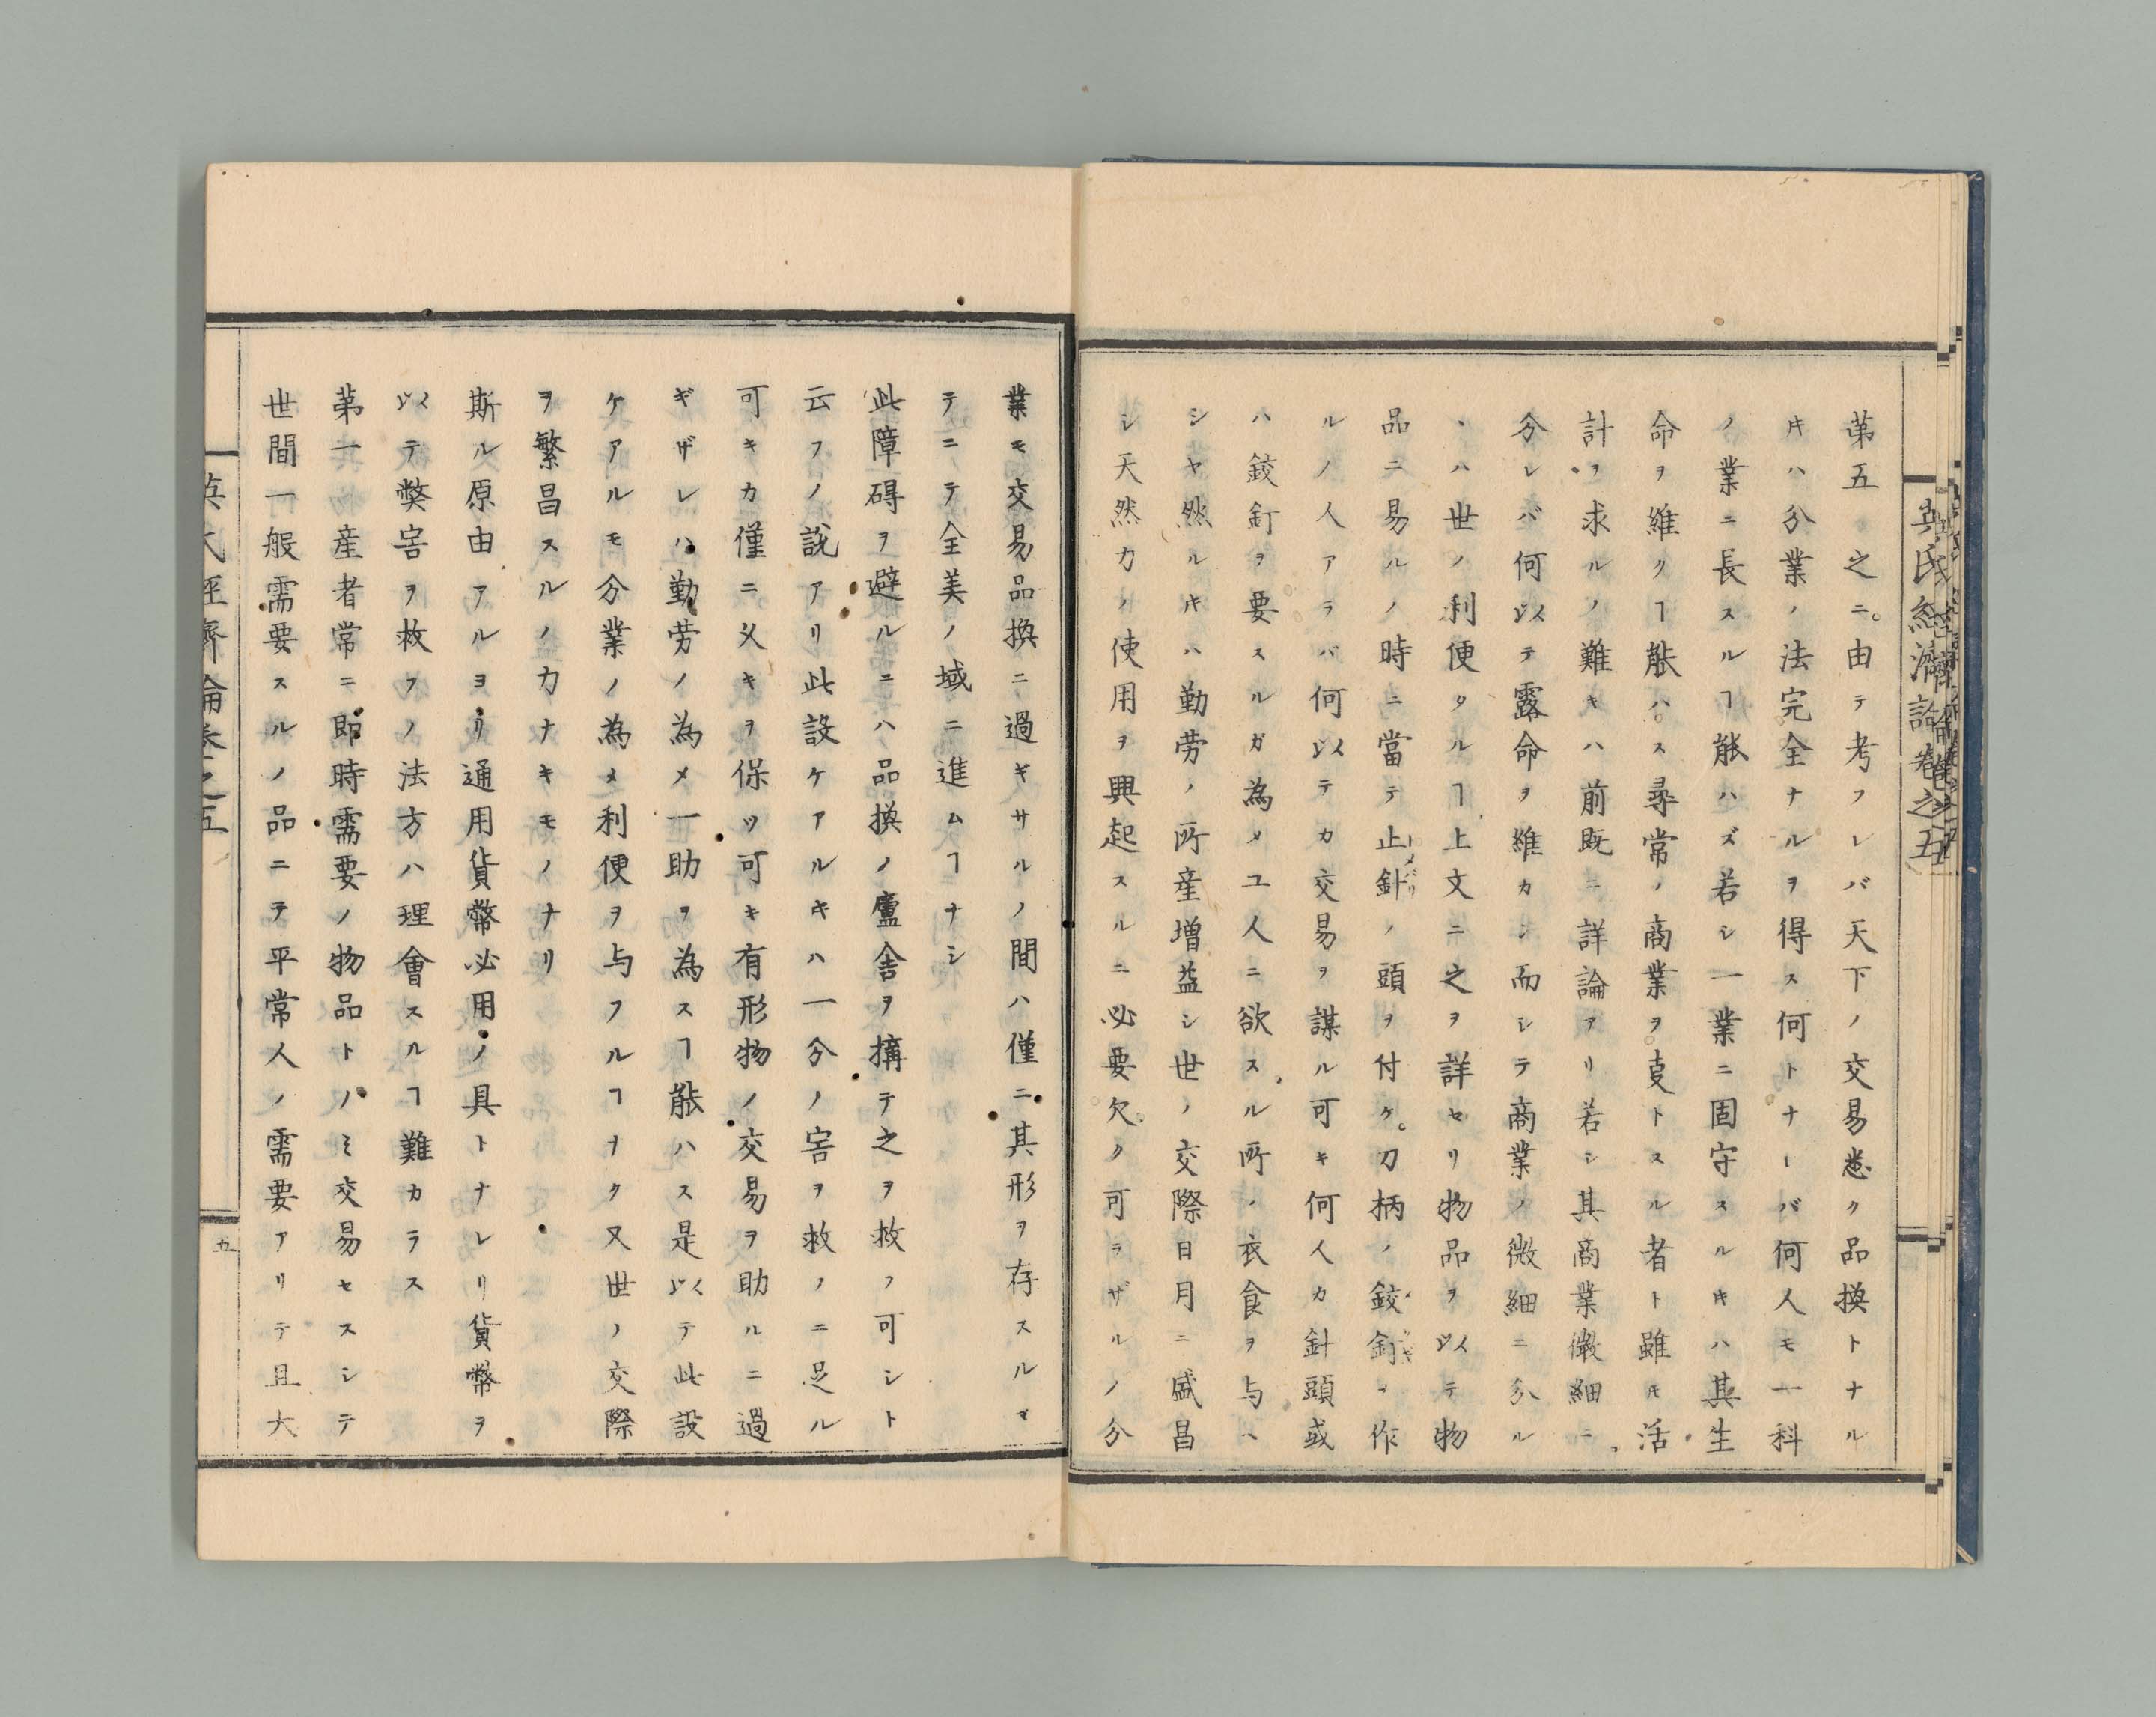 英氏經濟論卷之五
第五 之ニ由テ考フレバ天下ノ交易悉ク品換トナル
𪜈ハ分業ノ法完全ナルヲ得ス何トナーバ何人モ一科
ノ業ニ長スルヿ能ハズ若シ一業ニ固守スル𪜈ハ其生
命ヲ維クヿ能ハス尋常ノ商業ヲ支トスル者ト雖𪜈活
計ヲ求ルノ難キハ前既ニ詳論アリ若シ其商業微細ニ
分レバ何以テ露命ヲ維カン而シテ商業ノ微細ニ分ル
ヽハ世ノ利便タルヿ上文ニ之ヲ詳セリ物品ヲ以テ物
品ニ易ルノ時ニ當テ止針ノ頭ヲ付ケ刀柄ノ鉸釘ヲ作
ルノ人アラバ何以テカ交易ヲ謀ル可キ何人カ針頭或
ハ鉸釘ヲ要スルガ為メユ人ニ欲スル所ノ衣食ヲ与ヘ
シヤ然ル𪜈ハ勤労ノ所産増益シ世ノ交際日月ニ盛昌
シ天然力ノ使用ヲ興起スルニ必要欠ク可ラザルノ分
業モ交易品換ニ過ギサルノ間ハ僅ニ其形ヲ存スルマ
テニテ全美ノ域ニ進ムヿナシ
此障碍ヲ避ルニハ品換ノ廬舎ヲ搆テ之ヲ救フ可シト
云フノ説アリ此設ケアルキハ一分ノ害ヲ救ノニ足ル
可キカ僅ニ乂キヲ保ツ可キ有形物ノ交易ヲ助ルニ過
ギザレハ勤労ノ為メ一助ヲ為スヿ能ハス是以テ此設
ケアルモ分業ノ為メ利便ヲ与フルヿナク又世ノ交際
ヲ繁昌スルノ力ナキモノナリ
斯ル原由アルヨリ通用貨幣必用ノ具トナレリ貨幣ヲ
以テ弊害ヲ救フノ法方ハ理會スルヿ難カラス
第一 産者常ニ即時需要ノ物品トノミ交易セスシテ
世間一般需要スルノ品ニテ平常人ノ需要アリテ且大
英氏經濟論卷之五
五